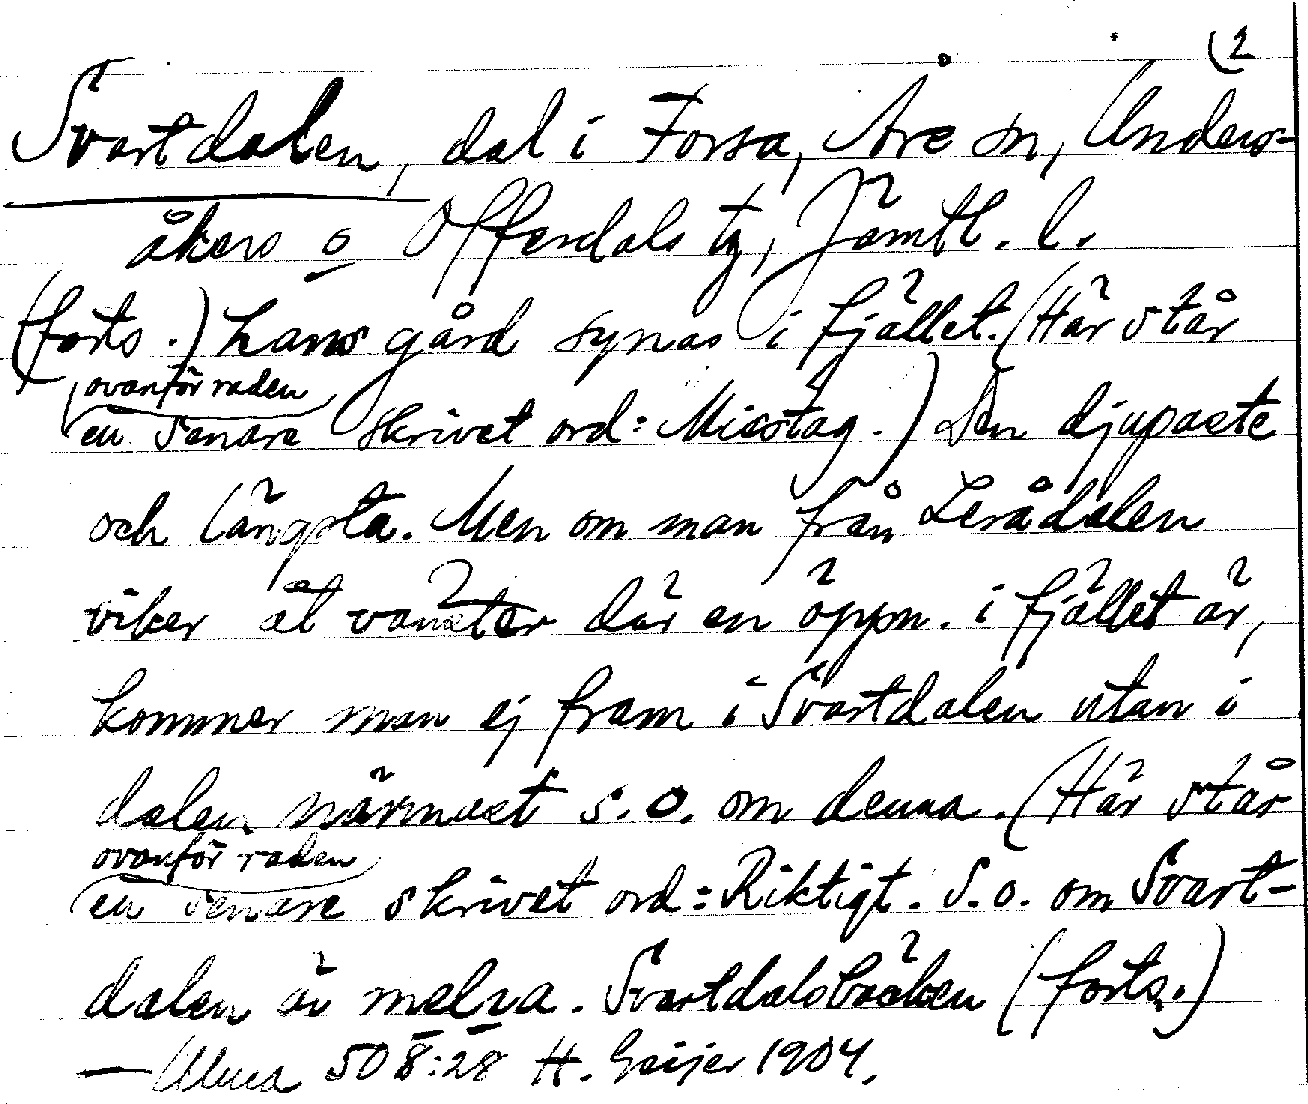 (2
Svartdalen, dal i Forsa, Åre sn, Unders-
åkers o Offerdals tg, Jämtl. l.
(forts.) hans gård synas i fjället. (Här står
ovanför raden
en senare skrivet ord: Misstag.) Den djupaste
och längsta. Men om man från Lerådalen
viker åt vänster där en öppn. i fjället är,
kommer man ej fram i Svartdalen utan i
dalen närmast s.o. om denna. (Här står
ovanför raden
en senare skrivet ord: Riktigt. S.o. om Svart-
dalen är melra. Svartdalsbäcken (forts.)
— Alma 508:28 H. Geijer 1904.